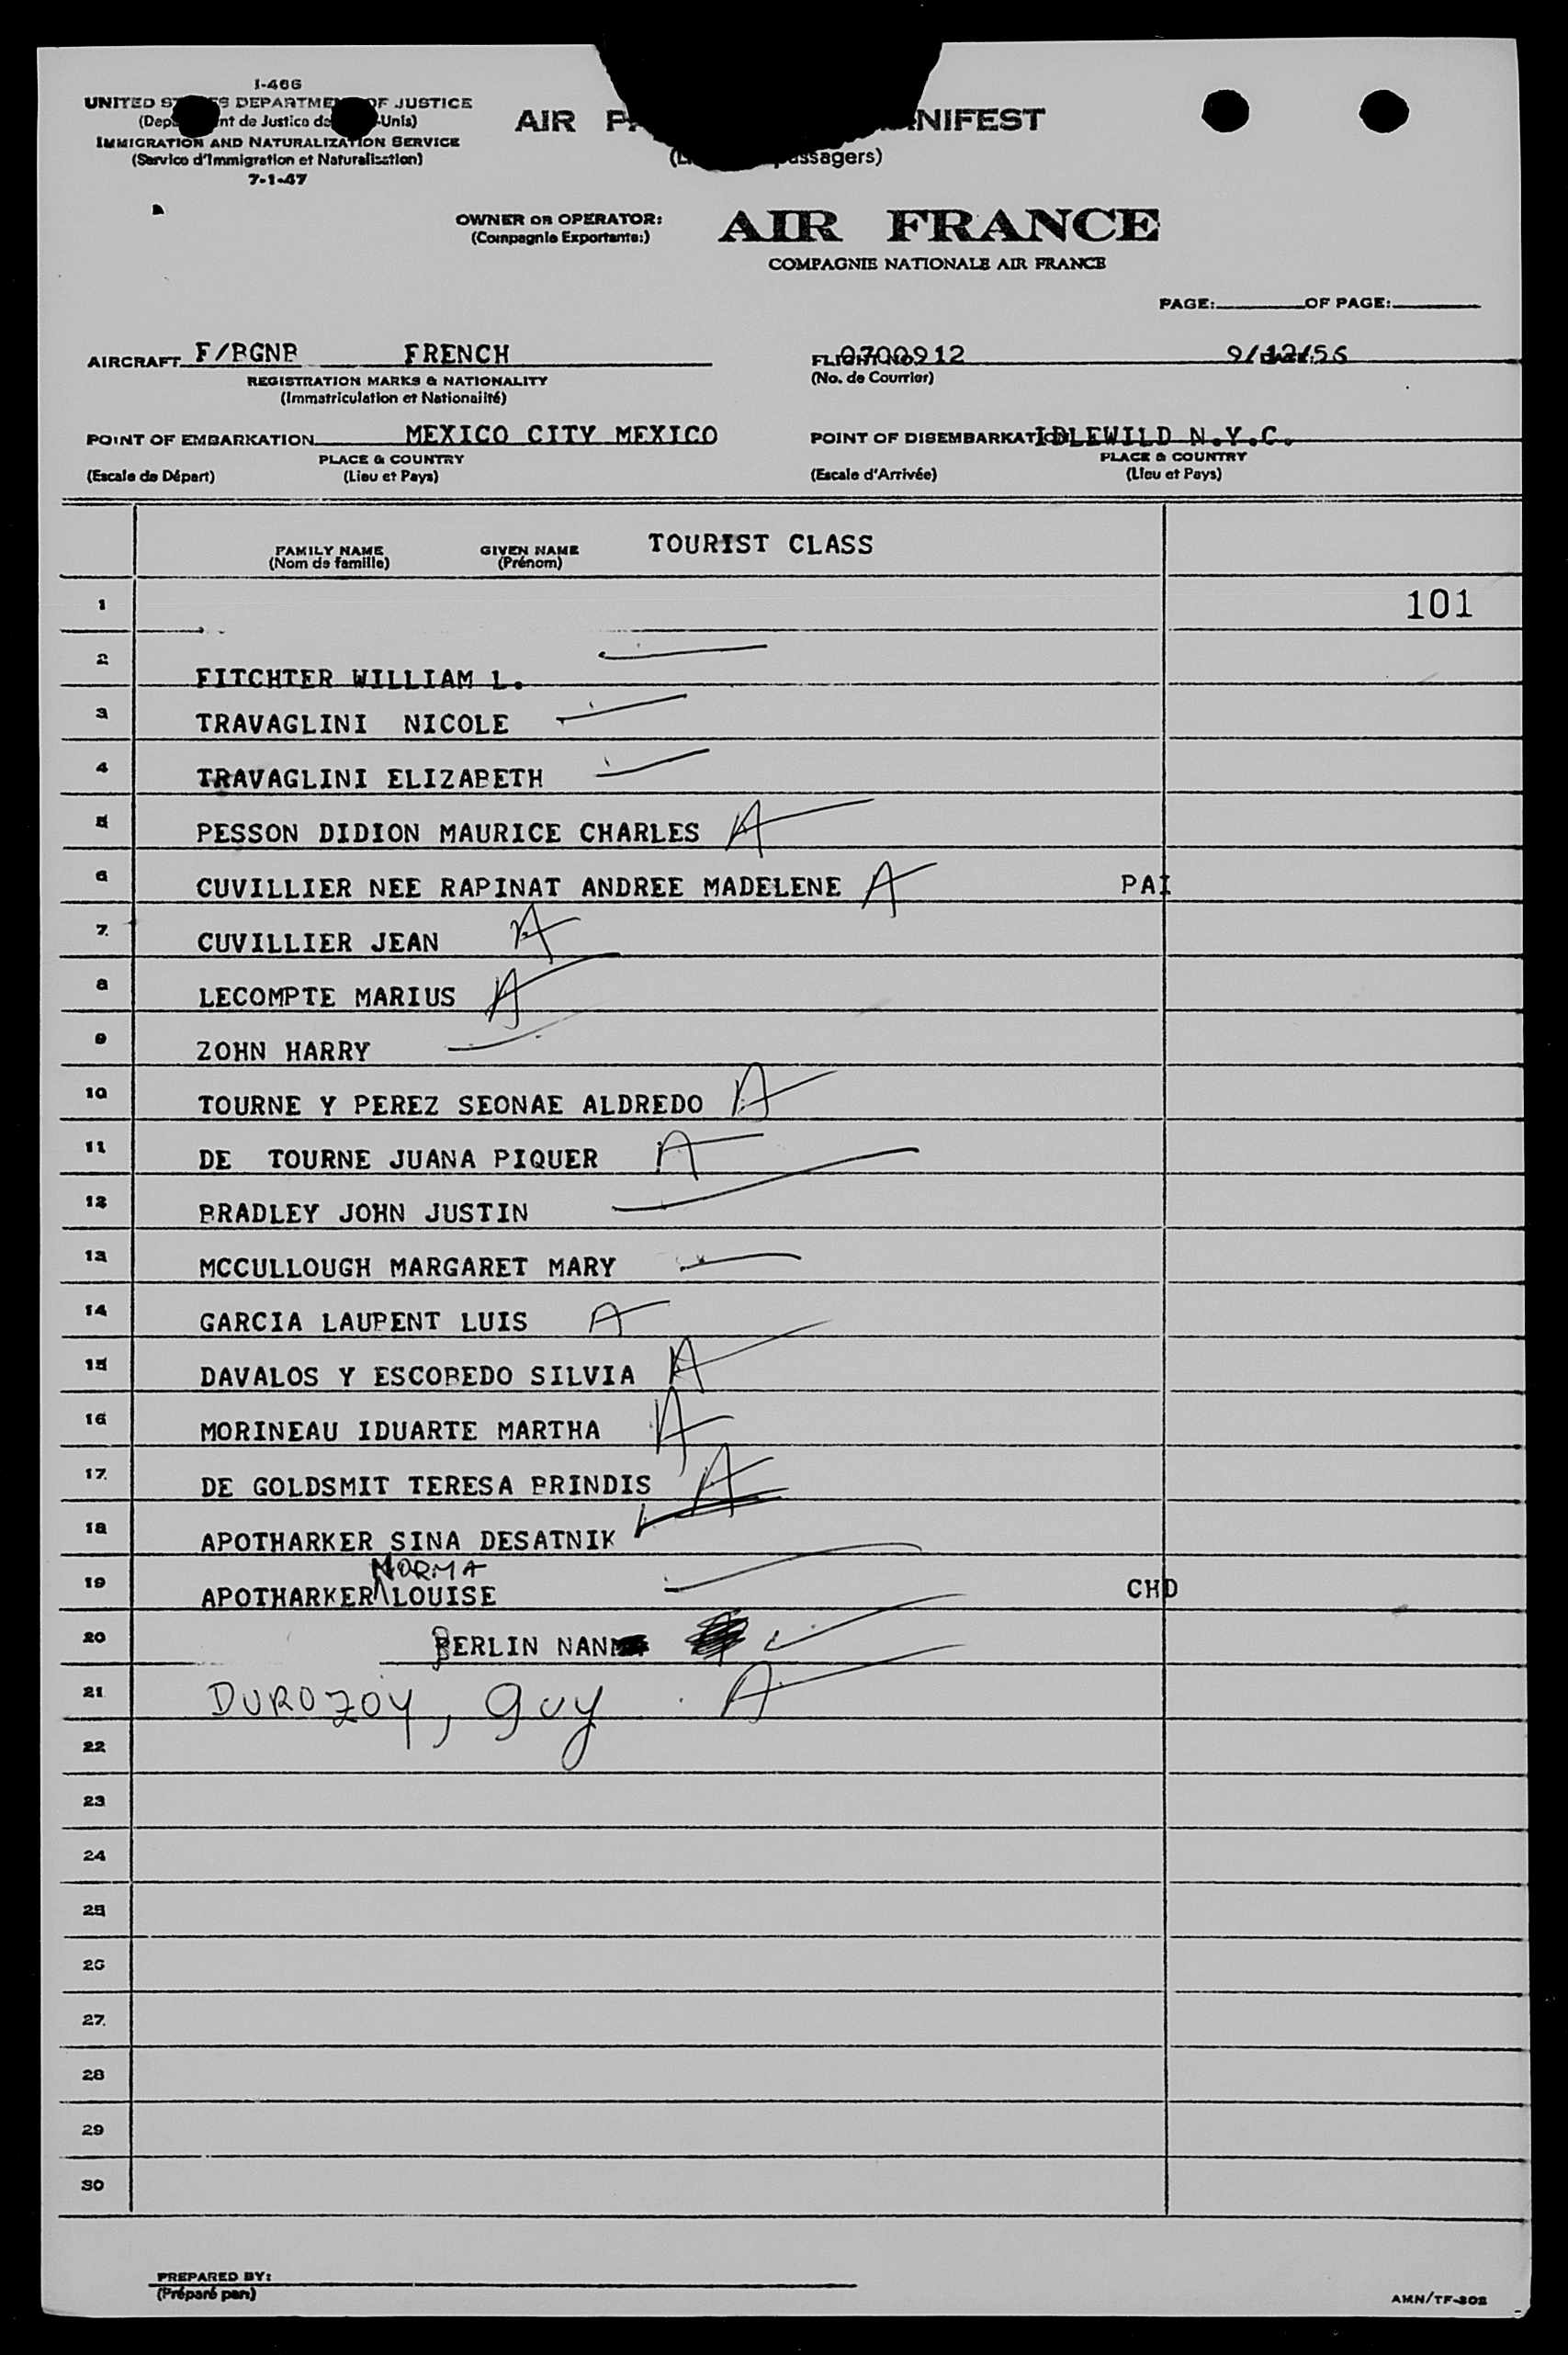 I-466
UNITED STATES DEPARTMENT OF JUSTICE
(Dep nt de Justice de -Unis)
IMMIGRATION AND NATURALIZATION SERVICE
(Service d'Immigration et Naturalisation)
7-1-47
AIR PA NIFEST
passagers)
OWNER OR OPERATOR: AIR FRANCE
(Compagnie Exportante:)
COMPAGNIE NATIONALE AIR FRANCE
PAGE: OF PAGE:
AIRCRAFT F/BGNB FRENCH
REGISTRATION MARKS & NATIONALITY
(Immatriculation et Nationalité)
FLIGHT NO. 0700912 9/12/56
(No. de Courrier)
POINT OF EMBARKATION MEXICO CITY MEXICO
PLACE & COUNTRY
(Escale de Départ) (Lieu et Pays)
POINT OF DISEMBARKATION IDLEWILD N.Y.C.
PLACE & COUNTRY
(Escale d'Arrivée) (Lieu et Pays)
FAMILY NAME GIVEN NAME TOURIST CLASS
(Nom de famille) (Prénom)
1 101
2 FITCHTER WILLIAM L.
3 TRAVAGLINI NICOLE
4 TRAVAGLINI ELIZABETH
5 PESSON DIDION MAURICE CHARLES A
6 CUVILLIER NEE RAPINAT ANDREE MADELENE A PAI
7. CUVILLIER JEAN A
8 LECOMPTE MARIUS A
9 ZOHN HARRY
10 TOURNE Y PEREZ SEONAE ALDREDO A
11 DE TOURNE JUANA PIQUER A
12 BRADLEY JOHN JUSTIN
13 MCCULLOUGH MARGARET MARY
14 GARCIA LAURENT LUIS A
15 DAVALOS Y ESCOBEDO SILVIA A
16 MORINEAU IDUARTE MARTHA A
17. DE GOLDSMIT TERESA BRINDIS A
18 APOTHARKER SINA DESATNIK
NORMA
19 APOTHARKER LOUISE CHD
20 BERLIN NAN
21 DUROZOY, guy A
22
23
24
25
26
27.
28
29
30
PREPARED BY:
(Préparé par:)
AMN/TF-302